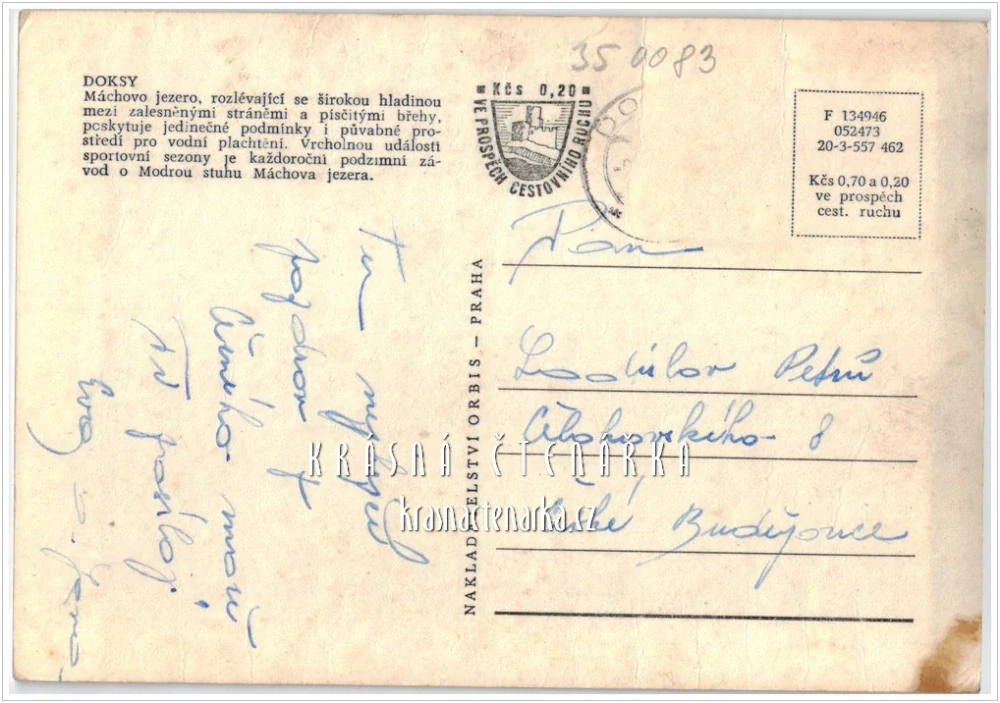 35 0083
DOKSY
Máchovo jezero, rozlévající se širokou hladinou
mezi zalesněnými stráněmi a písčitými břehy,
poskytuje jedinečné podmínky i půvabné pro-
středí pro vodní plachtění. Vrcholnou událostí
sportovní sezony je každoroční podzimní zá-
vod o Modrou stuhu Máchova jezera.
Kčs 0,20
VE PROSPĚCH CESTOVNÍHO RUCHU
F 134946
052473
20-3-557 462
Kčs 0,70 a 0,20
ve prospěch
cest. ruchu
NAKLADATELSTVÍ ORBIS — PRAHA
Pan
Ladislav Petrů
8
České Budějovice
Tu nejlepší
pozdrav z
moře
Ti posílají
Eva a
KRÁSNÁ ČTENÁŘKA
krasnactenarka.cz